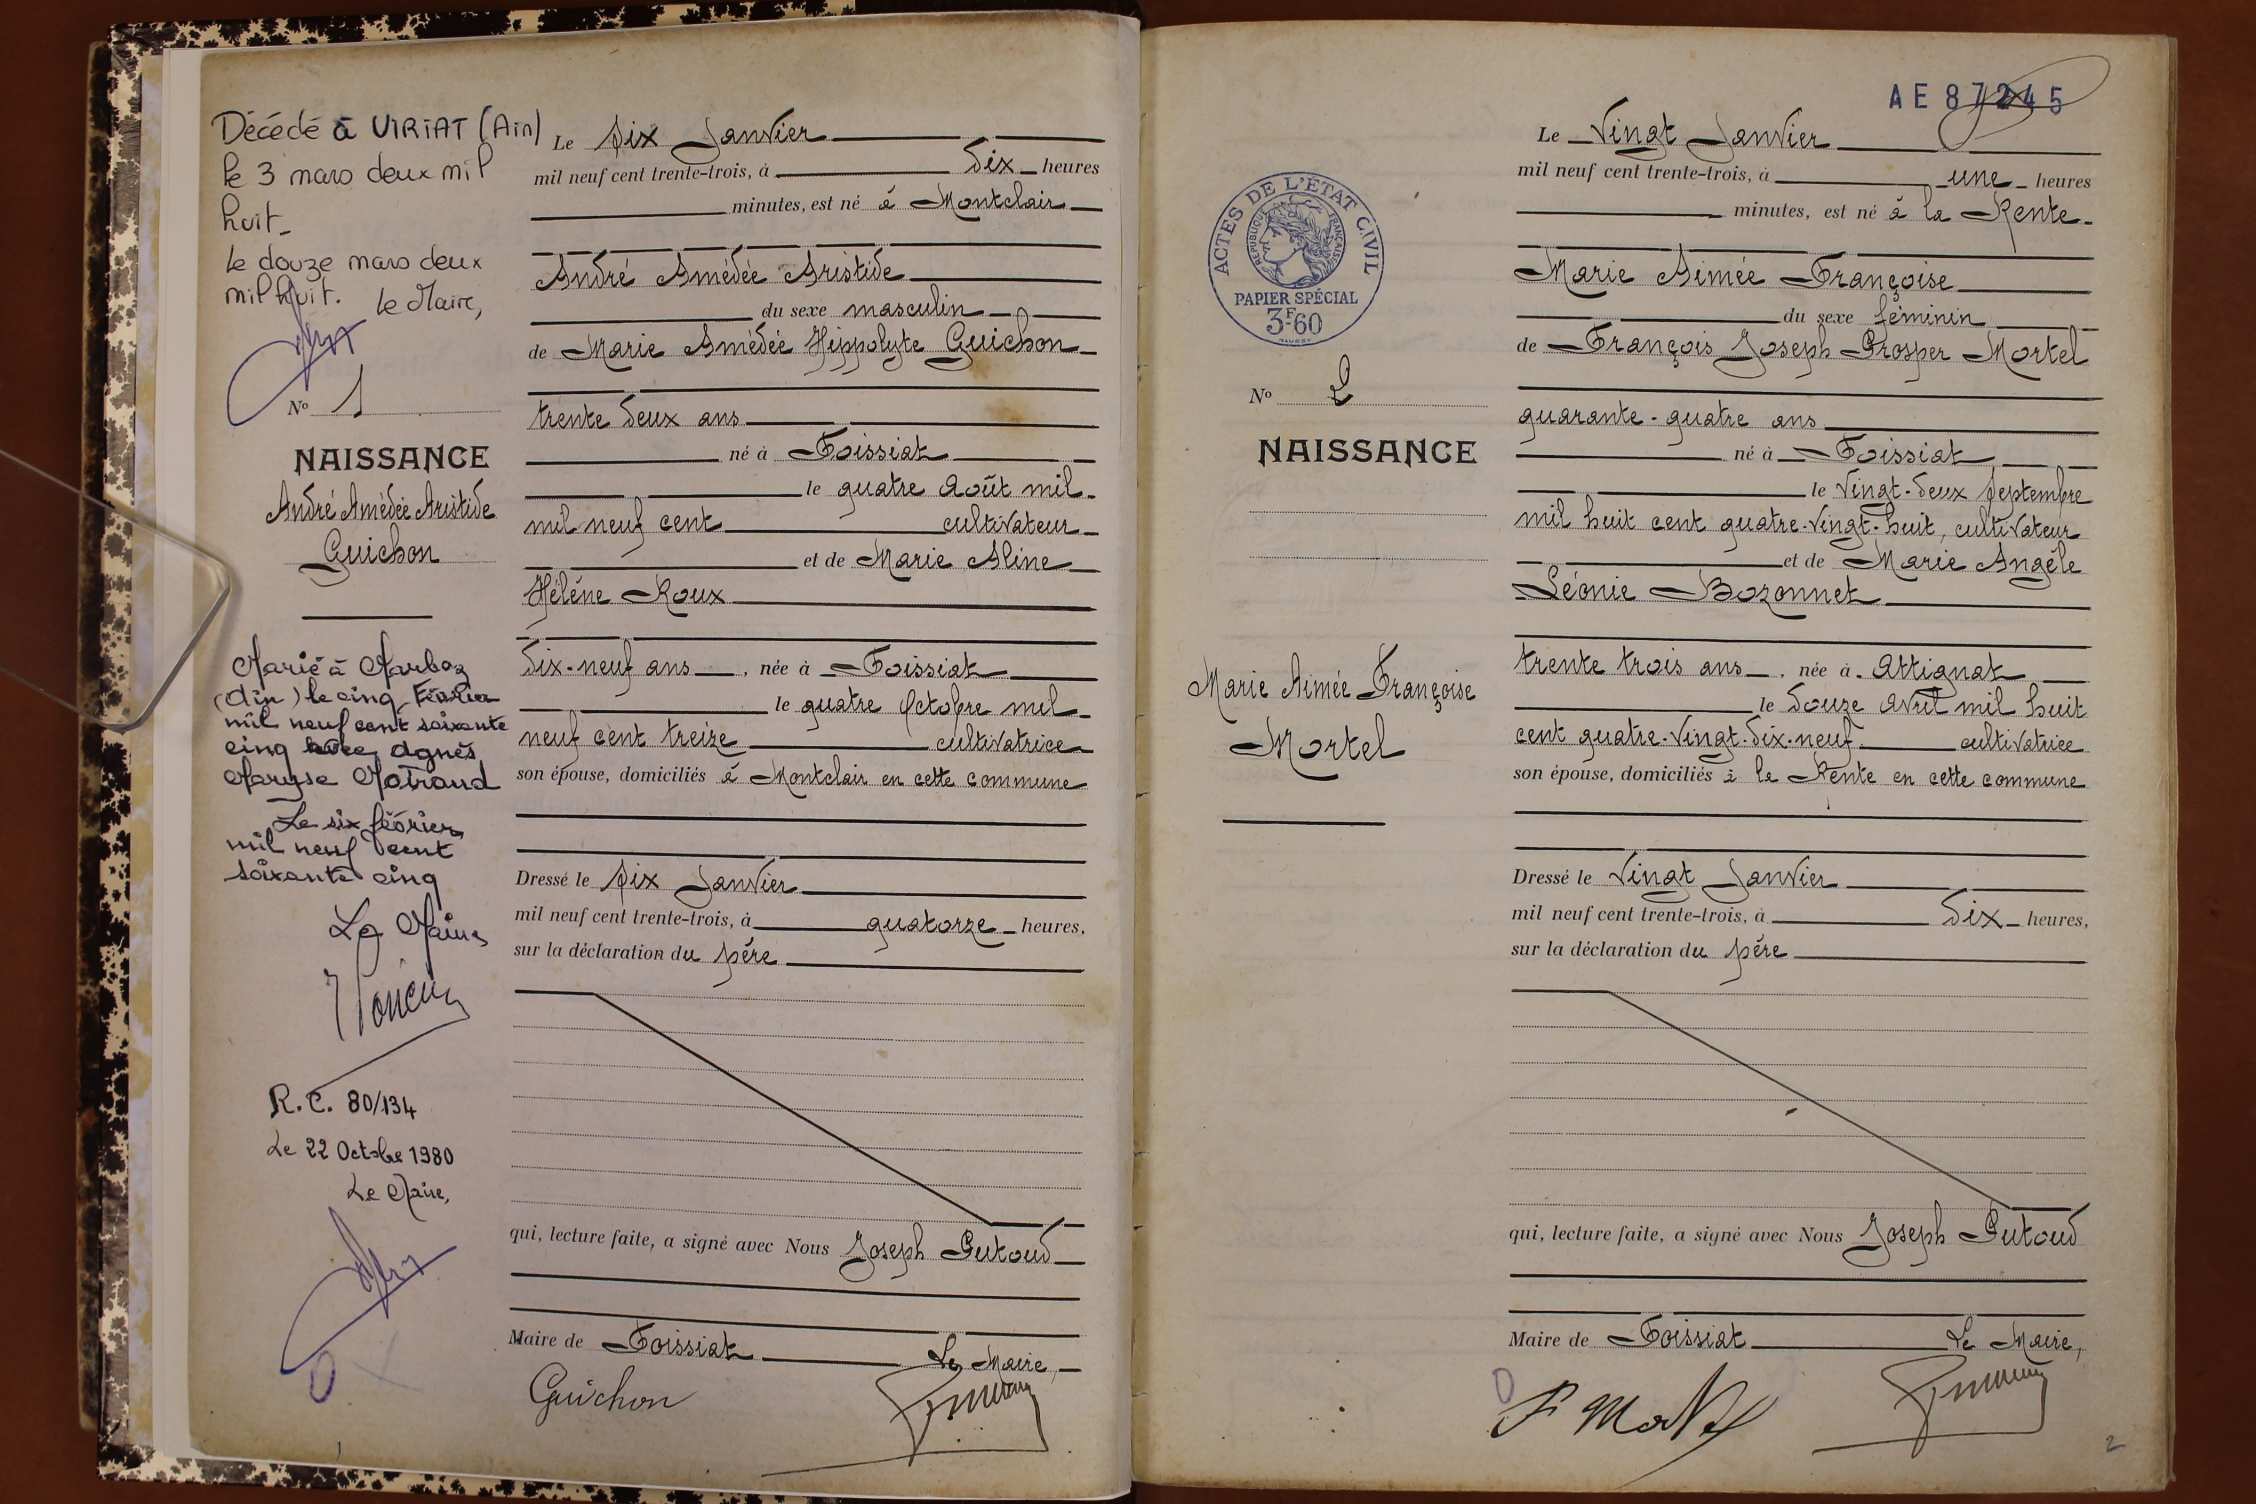 Décédé à VIRIAT (Ain)
le 3 mars deux mil
huit_
le douze mars deux
mil huit. le Maire,
No 1
NAISSANCE
André Amédée Aristide
Guichon
Marié à Marboz
(Ain) le cinq Février
mil neuf cent soixante
cinq avec Agnès
Maryse
Le six février
mil neuf cent
soixante cinq
Le Maire
R.C. 80/134
Le 22 Octobre 1980
Le Maire,
Le six Janvier
mil neuf cent trente-trois, à dix heures
minutes, est né à Montclair
André Amédée Aristide
du sexe masculin
de Marie Amédée Hippolyte Guichon
trente deux ans
né à Foissiat
le quatre Août mil
mil neuf cent cultivateur
et de Marie Aline
Hélène Roux
dix-neuf ans, née à Foissiat
le quatre Octobre mil
neuf cent treize cultivatrice
son épouse, domiciliés à Montclair en cette commune
Dressé le six Janvier
mil neuf cent trente-trois, à quatorze heures,
sur la déclaration du père
qui, lecture faite, a signé avec Nous Joseph Putoud
Maire de Foissiat Le Maire,
Guichon
AE 87245
ACTES DE L'ÉTAT CIVIL
RÉPUBLIQUE FRANÇAISE
PAPIER SPÉCIAL
3F60
No 2
NAISSANCE
Marie Aimée Françoise
Mortel
Le Vingt Janvier
mil neuf cent trente-trois, à une heures
minutes, est né à la Rente
Marie Aimée Françoise
du sexe féminin
de François Joseph Prosper Mortel
quarante-quatre ans
né à Foissiat
le vingt-deux septembre
mil huit cent quatre-vingt-huit, cultivateur
et de Marie Angèle
Léonie Bozonnet
trente trois ans, née à Attignat
le douze Avril mil huit
cent quatre-vingt-dix-neuf cultivatrice
son épouse, domiciliés à la Rente en cette commune
Dressé le Vingt Janvier
mil neuf cent trente-trois, à dix heures,
sur la déclaration du père
qui, lecture faite, a signé avec Nous Joseph Putoud
Maire de Foissiat Le Maire,
F Mortel
2